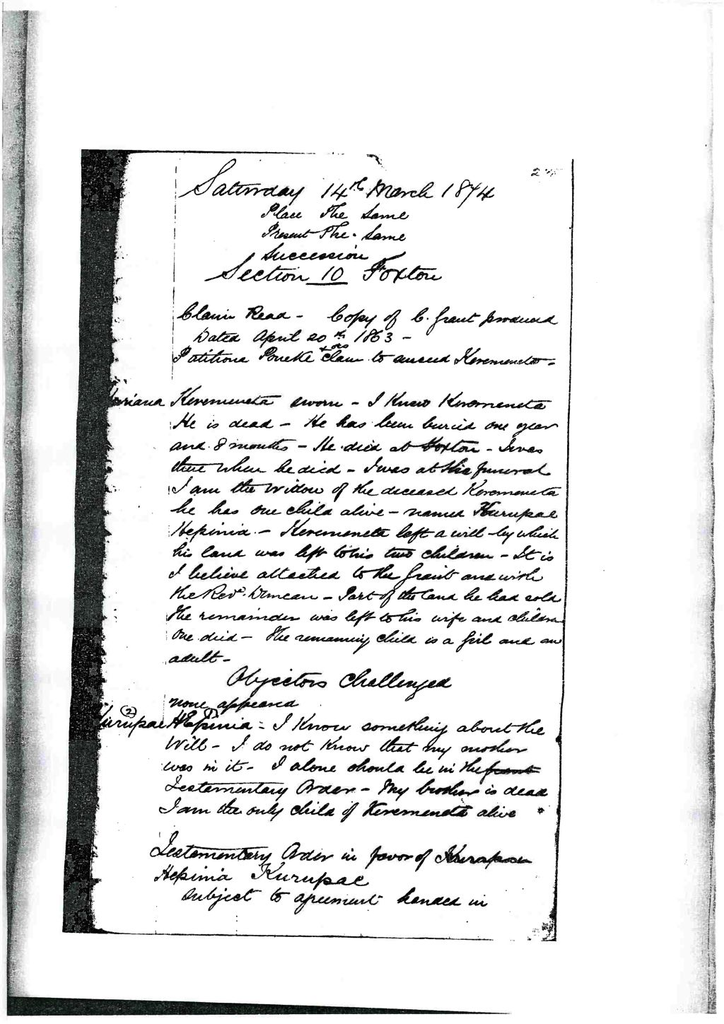 Saturday 14th March 1874
Place The Same
Present The Same
Succession
Section 10 Foxton
Claim Read - Copy of C. Grant produced
Dated April 20th 1863 -
Petitiona Poneke & ors Claim to succeed Keremeneta -
Keremeneta sworn - I Knew Keremeneta
He is dead - He has been buried one year
and 8 months - He died at Foxton - I was
there when he died - I was at his funeral
I am the Widow of the deceased Keremeneta
he has one child alive - named Kurupae
Hepinia - Keremeneta left a will - by which
his land was left to his two children - It is
I believe attached to the Grant and with
the Revd Duncan - Part of the land he had sold
The remainder was left to his wife and children
One died - The remaining child is a girl and an
adult -
Objectors Challenged
none appeared
(2)
Kurupae Hepinia - I Know something about the
Will - I do not Know that my mother
was in it - I alone should be in the
Testamentary Order - My brother is dead
I am the only child of Keremeneta alive
Testamentary Order in favor of
Hepinia Kurupae
Subject to agreement handed in